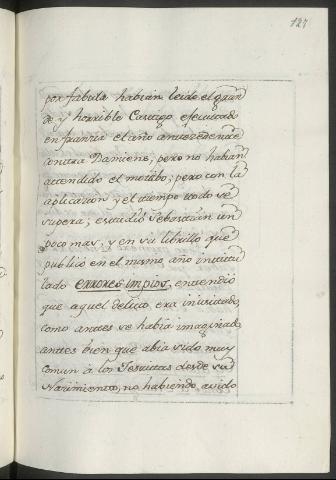 127
por fabula habian leido el gran
de y horrible Castigo esecutado
en francia el año antezedente
contra Damiens, pero no habian
attendido el motibo; pero con la
aplicacion y el tiempo todo se
supera; estudió Sebastian un
poco mas, y en su librillo que
publicó en el mismo año intitu
lado errores impios, entendió
que aquel delito era inusitado,
como antes se habia imaginado,
antes bien que abia sido muy
comun à los Jesuitas desde su
Nazimiento, no habiendo avido